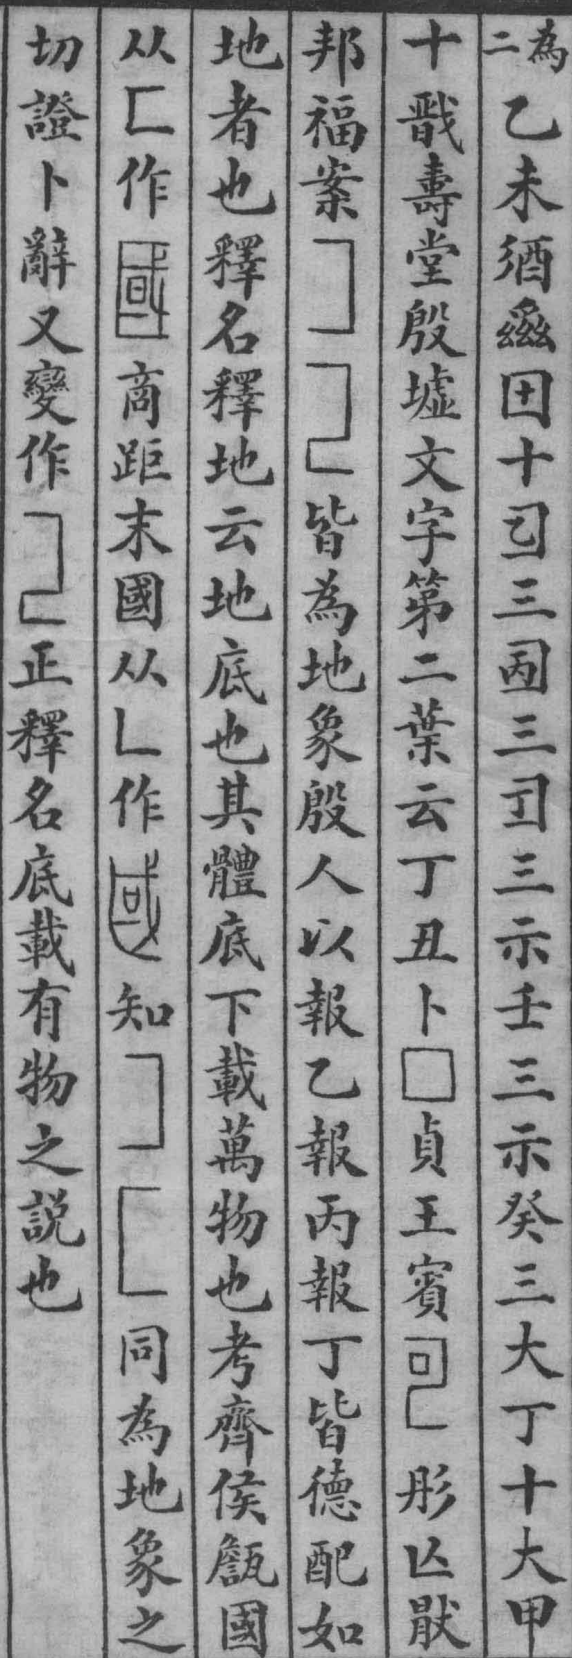 為二乙未酒𢆶田十𠃑三𠃒三𠃓三示壬三示癸三大丁十大甲
十戩壽堂殷墟文字第二葉云丁丑卜□貞王賓肜亾猒
邦福案皆為地象殷人以報乙報丙報丁皆德配如
地者也釋名釋地云地底也其體底下載萬物也考齊侯甔國
从匚作商距末國从𠃊作知同為地象之
切證卜辭又變作正釋名底載有物之説也